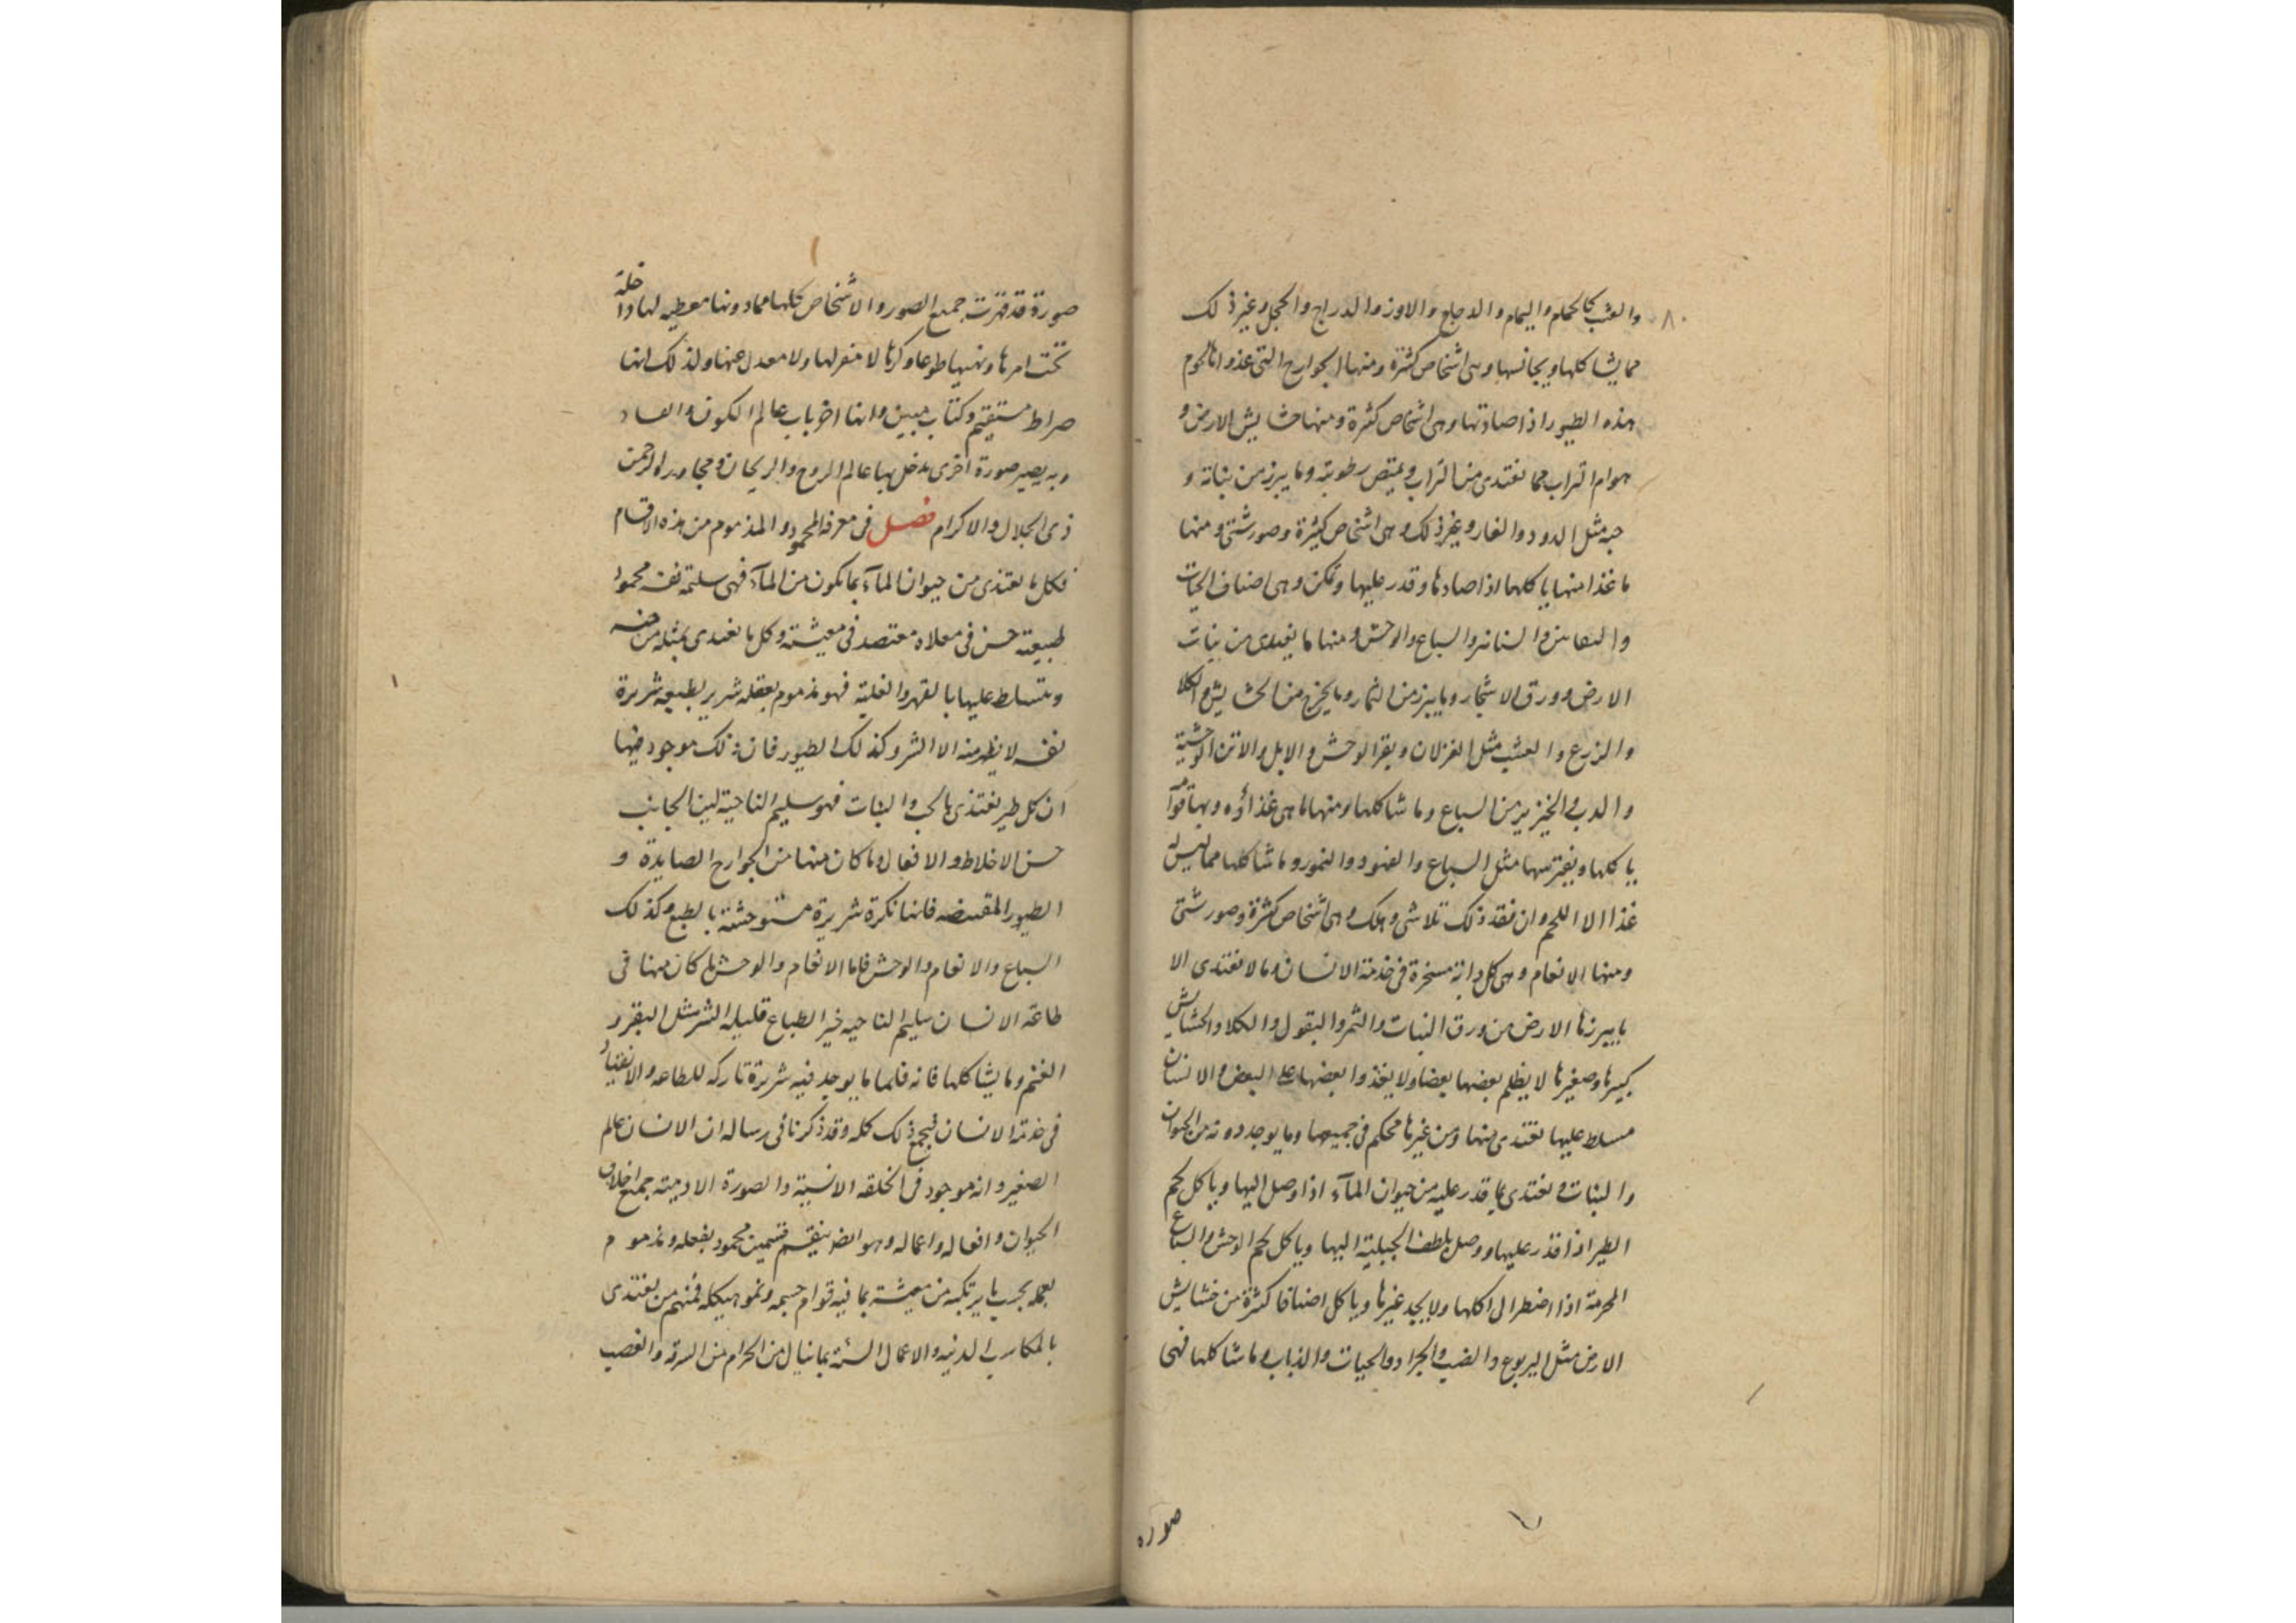 والعشب كالحمام واليمام والدجاج والاوز والدراج والحجل وغير ذلك
مما يشاكلها ويجانسها وهى اشخاص كثيرة ومنها الجوارح التى غذواتها لحوم
هذه الطيور اذا صادتها وهى اشخاص كثيرة ومنها حشايش الارض و
هوام التراب مما تغتدى من التراب ويمتص رطوبته وما يبرز من نباته و
حبه مثل الدود والفار وغير ذلك وهى اشخاص كثيرة وصور شتى ومنها
ما غذا منها ياكلها اذا صادها وقدر عليها وتمكن وهى اصناف الحيات
والثعابين والسنانير والسباع والوحش ومنها ما يغتدى من نبات
الارض وورق الاشجار وما يبرز من الثمار وما يخرج من الحشايش والكلا
والزرع والعشب مثل الغزلان وبقر الوحش والابل والاتن الوحشية
والدب والخنزير من السباع وما شاكلها ومنها ما هى غذاؤه وبها قوامه
ياكلها ويفترسها مثل السباع والفهود والنمور وما شاكلها مما ليس له
غذا الا اللحم وان فقد ذلك تلاشى وهلك وهى اشخاص كثيرة وصور شتى
ومنها الانعام وهى كل دابة مسخرة فى خدمة الانسان وما لا تغتدى الا
بما يبرزها الارض من ورق النبات والثمر والبقول والكلا والحشايش
كبيرها وصغيرها لا يظلم بعضها بعضا ولا يغذوا بعضها على البعض والانسان
مسلط عليها تغتدى منها ومن غيرها محكم فى جميعها وما يوجد دونه من الحيوان
والنبات وتغتدى بما قدر عليه من حيوان المآء اذا وصل اليها وياكل لحم
الطير اذا قدر عليها ووصل بلطف الحيلة اليها وياكل لحم الوحش والسباع
المحرمة اذا اضطر الى اكلها ولا يجد غيرها وياكل اصنافا كثيرة من خشايش
الارض مثل اليربوع والضب والجراد والحيات والذباب وما شاكلها فهى
صوره
صورة قد قهرت جميع الصور والاشخاص كلها مما دونها معطيه لها داخلة
تحت امرها ونهيها طوعا وكرها لا مفر لها ولا معدل عنها ولذلك انها
صراط مستقيم وكتاب مبين وانها اخر باب عالم الكون والفساد
وبه يصير صورة اخرى تدخل بها عالم الروح والريحان ومجاورة الرحمن
ذى الجلال والاكرام فصل فى معرفة المحمود والمذموم من هذه الاقسام
فكل ما تغتذى من حيوان المآء بما يكون من المآء فهى سليمة نفسه محمودا
طبيعته حسن فى معلاه مقتصد فى معيشته وكل ما تغتدى بمثله من جنسه
ويتسلط عليها بالقهر والغلبة فهو مذموم بعقله شرير بطبيعه شريرة
نفسه لا يظهر منه الا الشر وكذلك الطيور فان ذلك موجود فيها
ان كل طير يغتذى بالحب والنبات فهو سليم الناحية لين الجانب
حسن الاخلاط والافعال وما كان منها من الجوارح الصايدة و
الطيور المقتنصه فانها نكرة شريرة مستوحشة بالطبع وكذلك
السباع والانعام والوحش فاما الانعام والوحش ما كان منها فى
طاعة الانسان سليم الناحيه خير الطباع قليلة الشر مثل البقر و
الغنم وما يشاكلها فانه قلما ما يوجد فيه شريرة تاركه للطاعه والانقياد
فى خدمة الانسان فيجمع ذلك كله وقد ذكرنا فى رساله ان الانسان عالم
الصغير وانه موجود فى الخلقه الانسية والصورة الادمية جميع اخلاق
الحيوان وافعاله واعماله وهو ايضا ينقسم قسمين محمود بفعله ومذموم
بعمله بحسب ما يرتكبه من معيشة بما فيه قوام جسمه ونمو هيكله فمنهم من يغتذى
بالمكاسب الدنيه والاعمال السئة بما ينال من الحرام من السرقه والغصب